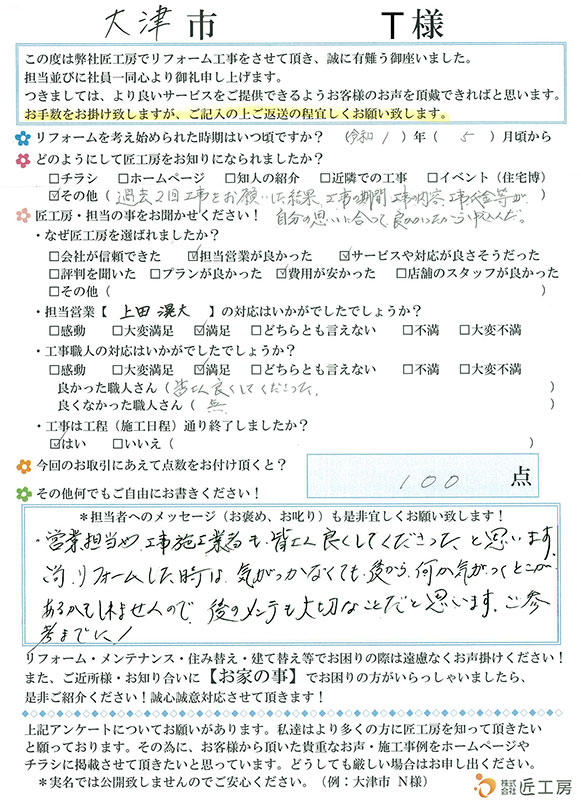 大津市 T様
この度は弊社匠工房でリフォーム工事をさせて頂き、誠に有難う御座いました。
担当並びに社員一同心より御礼申し上げます。
つきましては、より良いサービスをご提供できるようお客様のお声を頂戴できればと思います。
お手数をお掛け致しますが、ご記入の上ご返送の程宜しくお願い致します。
リフォームを考え始められた時期はいつ頃ですか？ (令和1)年(5)月頃から
どのようにして匠工房をお知りになられましたか？
□チラシ □ホームページ □知人の紹介 □近隣での工事 □イベント（住宅博）
☑その他（過去2回工事をお願いした結果、工事の期間、工事の内容、工事代金等が
自分の思いに合って良かったから申込んだ。
匠工房・担当の事をお聞かせください！
・なぜ匠工房を選ばれましたか？
□会社が信頼できた ☑担当営業が良かった ☑サービスや対応が良さそうだった
□評判を聞いた □プランが良かった ☑費用が安かった □店舗のスタッフが良かった
□その他（ ）
・担当営業【 上田滉大 】の対応はいかがでしたでしょうか？
□感動 □大変満足 ☑満足 □どちらとも言えない □不満 □大変不満
・工事職人の対応はいかがでしたでしょうか？
□感動 □大変満足 ☑満足 □どちらとも言えない □不満 □大変不満
良かった職人さん（皆さん良くしてくださった。）
良くなかった職人さん（無）
・工事は工程（施工日程）通り終了しましたか？
☑はい □いいえ（ ）
今回のお取引にあえて点数をお付け頂くと？ 100 点
その他何でもご自由にお書きください！
＊担当者へのメッセージ（お褒め、お叱り）も是非宜しくお願い致します！
・営業担当や、工事施工業者も、皆さん良くしてくださった、と思います。
尚、リフォームした時は、気がつかなくても、後から、何か気がつくところが
あるかもしれませんので、後のメンテも大切なことだと思います。ご参
考までに！
リフォーム・メンテナンス・住み替え・建て替え等でお困りの際は遠慮なくお声掛けください！
また、ご近所様・お知り合いに【お家の事】でお困りの方がいらっしゃいましたら、
是非ご紹介ください！誠心誠意対応させて頂きます！
上記アンケートについてお願いがあります。私達はより多くの方に匠工房を知って頂きたい
と願っております。その為に、お客様から頂いた貴重なお声・施工事例をホームページや
チラシに掲載させて頂きたいと思っています。どうしても厳しい場合はお申し出ください。
＊実名では公開致しませんのでご安心ください。（例：大津市 N様）
株式会社匠工房